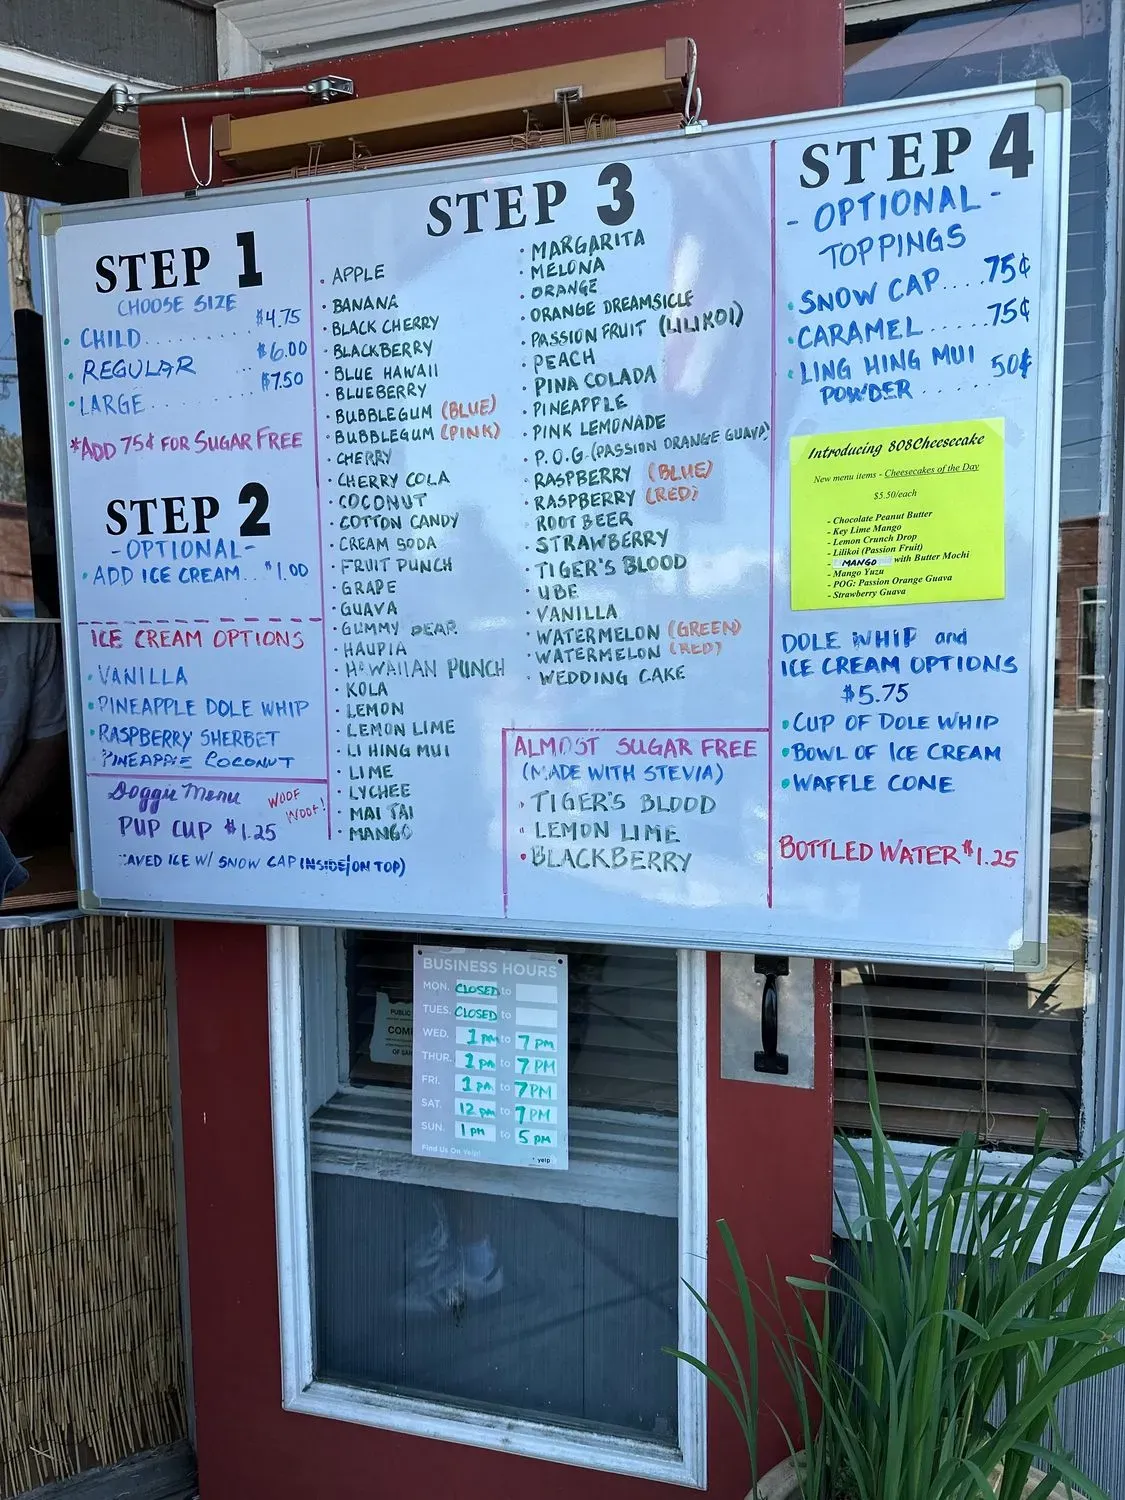 STEP 1
CHOOSE SIZE
• CHILD........ $4.75
• REGULAR $6.00
• LARGE........ $7.50
*ADD 75¢ FOR SUGAR FREE
STEP 2
-OPTIONAL-
• ADD ICE CREAM... $1.00
ICE CREAM OPTIONS
• VANILLA
• PINEAPPLE DOLE WHIP
• RASPBERRY SHERBET
PINEAPPLE COCONUT
Doggie Menu
WOOF
WOOF!
PUP CUP $1.25
AVED ICE W/ SNOW CAP (INSIDE/ON TOP)
STEP 3
• APPLE
• BANANA
• BLACK CHERRY
• BLACKBERRY
• BLUE HAWAII
• BLUEBERRY
• BUBBLEGUM (BLUE)
• BUBBLEGUM (PINK)
• CHERRY
• CHERRY COLA
• COCONUT
• COTTON CANDY
• CREAM SODA
• FRUIT PUNCH
• GRAPE
• GUAVA
• GUMMY BEAR
• HAUPIA
• HAWAIIAN PUNCH
• KOLA
• LEMON
• LEMON LIME
• LI HING MUI
• LIME
• LYCHEE
• MAI TAI
• MANGO
• MARGARITA
• MELONA
• ORANGE
• ORANGE DREAMSICLE
• PASSION FRUIT (LILIKOI)
• PEACH
• PINA COLADA
• PINEAPPLE
• PINK LEMONADE
• P.O.G. (PASSION ORANGE GUAVA)
• RASPBERRY (BLUE)
• RASPBERRY (RED)
• ROOT BEER
• STRAWBERRY
• TIGER'S BLOOD
• UBE
• VANILLA
• WATERMELON (GREEN)
• WATERMELON (RED)
• WEDDING CAKE
ALMOST SUGAR FREE
(MADE WITH STEVIA)
• TIGER'S BLOOD
• LEMON LIME
• BLACKBERRY
STEP 4
- OPTIONAL -
TOPPINGS
• SNOW CAP....75¢
• CARAMEL...... 75¢
• LING HING MUI
POWDER..... 50¢
Introducing 808Cheesecake
New menu items - Cheesecakes of the Day
$5.50/each
- Chocolate Peanut Butter
- Key Lime Mango
- Lemon Crunch Drop
- Lilikoi (Passion Fruit)
- MANGO with Butter Mochi
- Mango Yuzu
- POG: Passion Orange Guava
- Strawberry Guava
DOLE WHIP and
ICE CREAM OPTIONS
$5.75
• CUP OF DOLE WHIP
• BOWL OF ICE CREAM
• WAFFLE CONE
BOTTLED WATER $1.25
BUSINESS HOURS
MON. CLOSED to
TUES. CLOSED to
WED. 1 PM to 7 PM
THUR. 1 PM to 7 PM
FRI. 1 PM to 7 PM
SAT. 12 PM to 7 PM
SUN. 1 PM to 5 PM
Find Us On Yelp!
yelp
PUBLIC
COM
OF SAN